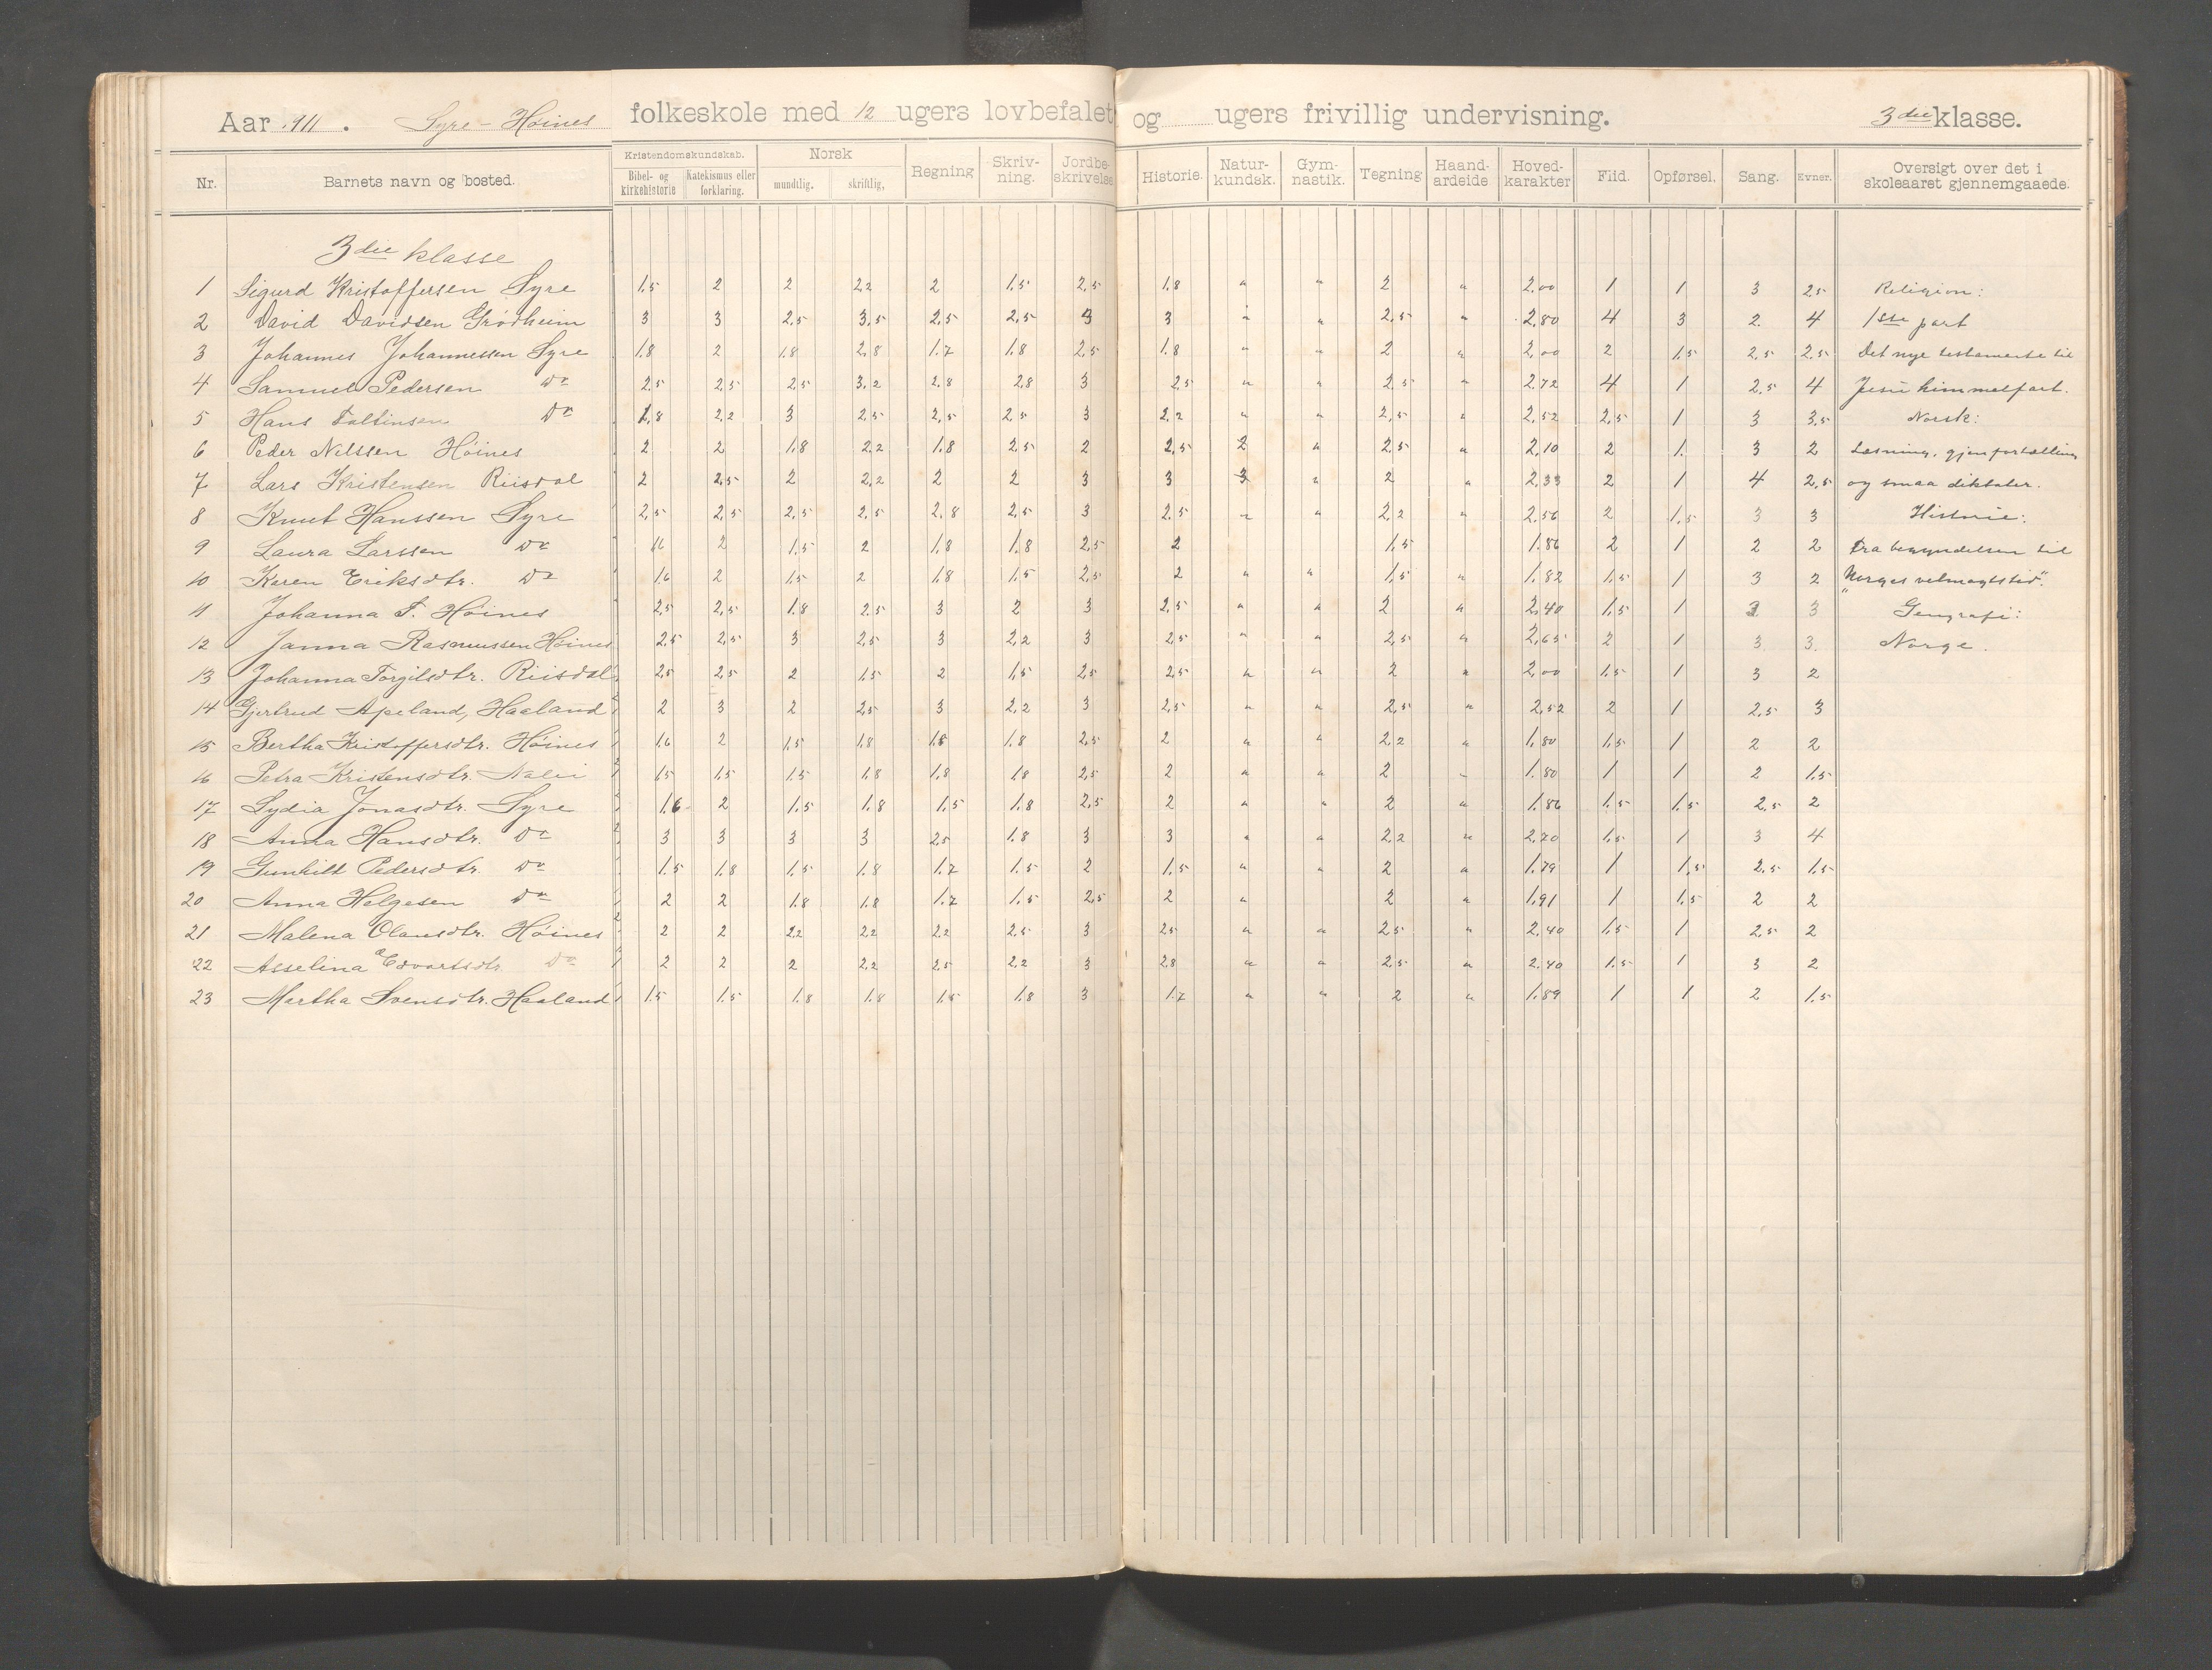 Aar 1911. Syre - Høines folkeskole med 12 ugers lovbefalet og ugers frivillig undervisning. 3die klasse.
Nr. Barnets navn og bosted. Kristendomskundskab. Bibel- og kirkehistorie Katekismus eller forklaring. Norsk mundtlig. skriftlig, Regning Skriv-ning. Jordbe-skrivelse Historie. Natur-kundsk. Gym-nastik. Tegning Haand-arbeide Hoved-karakter Flid. Opførsel. Sang. Evner. Oversigt over det i skoleaaret gjennemgaaede.
3die klasse
1 Sigurd Kristoffersen Syre 1.5 2 2 2,2 2 1.5 2,5 1.8 " " 2 " 2.00 1 1 3 2,5 Religion:
2 David Davidsen Grødheim 3 3 2,5 3,5 2,5 2,5 3 3 " " 2,5 " 2,80 4 3 2. 4 1ste part
3 Johannes Johannessen Syre 1.8 2 1.8 2,8 1.7 1.8 2,5 1.8 " " 2 " 2,00 2 1.5 2,5 2,5 Det nye testamente til
4 Samuel Pedersen Do 2,5 2,5 2,5 3,2 2,8 2,8 3 2,5 " " 2,5 " 2,72 4 1 2,5 4 Jesu himmelfart.
5 Hans Faltinsen Do 1,8 2,2 3 2,5 2,5 2,5 3 2,2 " " 2,5 " 2,52 2,5 1 3 3,5 Norsk:
6 Peder Nilssen Høines 2 2 1.8 2,2 1.8 2,5 2 2,5 2 " 2,5 " 2,10 2 1. 3 2 Læsning, gjenfortælling
7 Lars Kristensen Riisdal 2 2,5 2 2,2 2 2 3 3 3 " 2 " 2,33 2 1 4 2,5 og smaa diktater.
8 Knut Hanssen Syre 2,5 2,5 2,5 2,5 2,8 2,5 3 2,5 " " 2,2 " 2,56 2 1,5 3 3 Historie:
9 Laura Larssen Do 1.6 2 1.5 2 1.8 1.8 2,5 2 1,5 1.86 2 1 2 2 Fra begyndelsen til
10 Karen Eriksdtr. Do 1.6 2 1.5 2 1.8 1.5 2,5 2 " " 1,5 " 1.82 1.5 1 3 2 "Norges velmagtstid".
11 Johanna T. Høines 2,5 2,5 1.8 2,5 3 2 3 2,5 " " 2 " 2,40 1,5 1 3 3 Geografi:
12 Janna Rasmussen Høines 2,5 2,5 3 2,5 3 2,2 3 2,5 " " 2,5 " 2,65 2 1 3 3. Norge.
13 Johanna Torgilsdtr. Riisdal 2,5 2,5 2 1,5 2 1,5 2,5 2,5 " " 2 " 2,00 1.5 1 3 2
14 Gjertrud Apeland, Haaland 2 3 2 2,5 3 2,2 3 2,5 " " 2,5 " 2,52 2 1 2,5 3
15 Bertha Kristoffersdtr. Høines 1.6 2 1,5 1.8 1.8 1.8 2,5 2 " " 2,2 " 1.80 1,5 1 2 2
16 Petra Kristensdtr. 1.5 1.5 1.5 1.8 1.8 1.8 2,5 2 " " 2 " 1.80 1 1 2 1.5
17 Sydia Jonasdtr. Syre 1.6 2 1.5 1.8 1.5 1.8 2,5 2 " " 2 " 1.86 1.5 1.5 2,5 2
18 Anna Hansdtr. Do 3 3 3 3 2,5 1.8 3 3 " " 2,2 " 2,70 1,5 1 3 4
19 Gunhild Pedersdtr. Do 1.5 1.8 1.5 1.8 1.7 1.5 2 1.5 " " 2 " 1.79 1 1,5 2,5 1.5
20 Anna Helgesen Do 2 2 1.8 1.8 1.7 1.5 2,5 2 " 2 " 1.91 1 1.5 2 2
21 Malena Olausdtr. Høines 2 2 2,2 2,2 2,2 2,5 3 2,5 " " 2,5 " 2,40 1,5 1 2,5 2
22 Asselina Edvartsdtr Do 2 2 2 2,2 2,5 2,2 3 2,8 " " 2,5 " 2.40 1.5 1 3 2
23 Martha Svensdtr. Haaland 1.5 1.5 1.8 1.8 1.5 1.8 3 1.7 " " 2 " 1.89 1 1 2 1.5